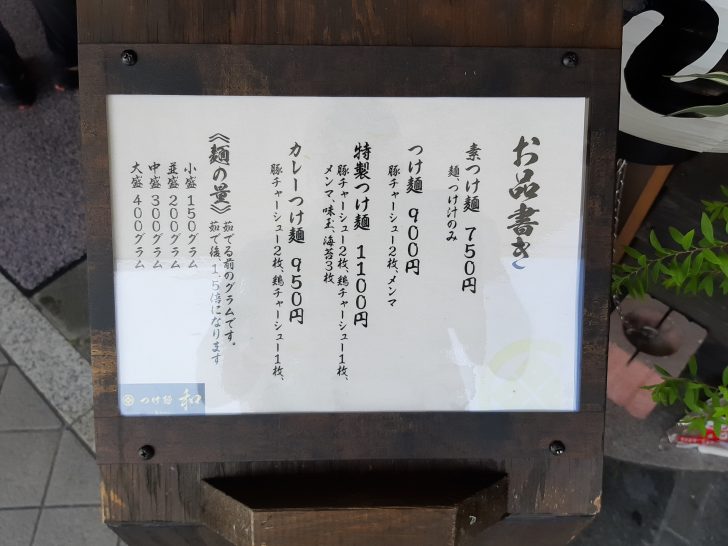 お品書き
素つけ麺 750円
麺、つけ汁のみ
つけ麺 900円
豚チャーシュー2枚、メンマ
特製つけ麺 1100円
豚チャーシュー2枚、鶏チャーシュー1枚、
メンマ、味玉、海苔3枚
カレーつけ麺 950円
豚チャーシュー2枚、鶏チャーシュー1枚、
《麺の量》
茹でる前のグラムです。
茹で後、1.5倍になります
小盛 150グラム
並盛 200グラム
中盛 300グラム
大盛 400グラム
つけ麺 和